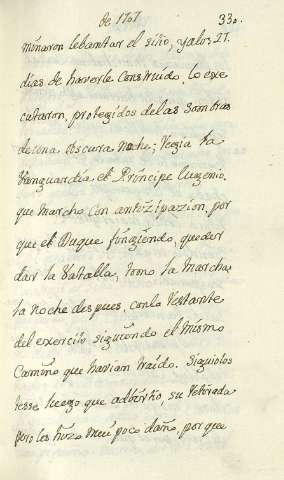 de 1707
330.
minaron lebantar el sitio, y alos 27.
dias de haverle Construido, lo exe
cutaron, protegidos de las sombras
de una obscura noche; regia la
Vanguardia el Príncipe Eugenio,
que marcho con antizipazion, por
que el Duque fingiendo, querer
dar la Vatalla, tomo la marcha
la noche despues, con lo restante
del exercito siguiendo el mismo
Camino que havian traido. Siguiolos
luego que advirtio, su retirada
pero les hizo mui poco daño, por que